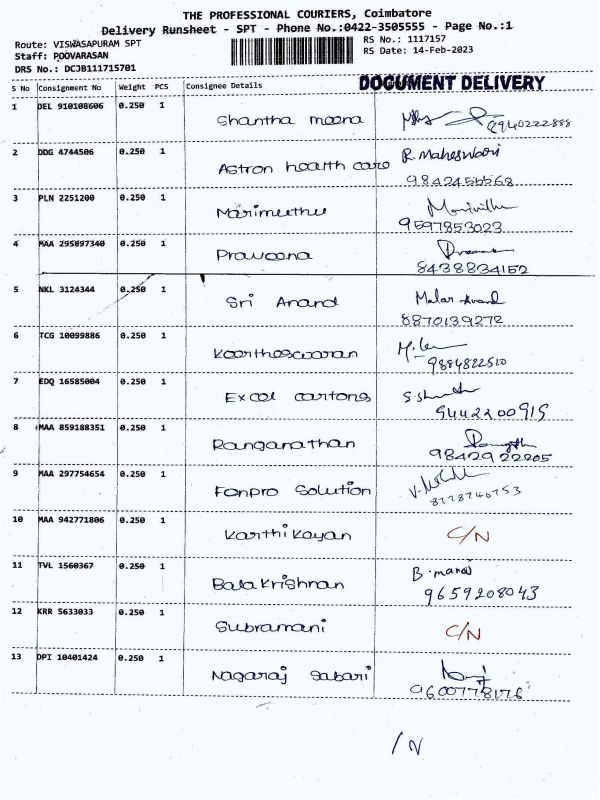 THE PROFESSIONAL COURIERS, Coimbatore
Delivery Runsheet - SPT - Phone No.:0422-3505555 - Page No.:1
Route: VISWASAPURAM SPT RS No.: 1117157
Staff: POOVARASAN RS Date: 14-Feb-2023
DRS No.: DCJB111715701
DOCUMENT DELIVERY
S No Consignment No Weight PCS Consignee Details
1 DEL 910108606 0.250 1 Shantha meena
8940222888
2 DDG 4744506 0.250 1 Astron health care R. Maheswari
9842455568
3 PLN 2251200 0.250 1 Marimuthu
9597853023
4 MAA 295897340 0.250 1 Praveena
8438834152
5 NKL 3124344 0.250 1 Sri Anand Malar Anand
8870139272
6 TCG 10099886 0.250 1 Keertheeswaran
9884822510
7 EDQ 16585004 0.250 1 Excel cartons
9442200915
8 MAA 859188351 0.250 1 Ranganathan
9842922205
9 MAA 297754654 0.250 1 Fenpro Solution
8778740753
10 MAA 942771806 0.250 1 Karthi Kayan C/N
11 TVL 1560367 0.250 1 Bala Krishnan B. manoj
9659208043
12 KRR 5633033 0.250 1 Subramani C/N
13 DPI 10401424 0.250 1 Nagaraj Sabari
9600778176
/N